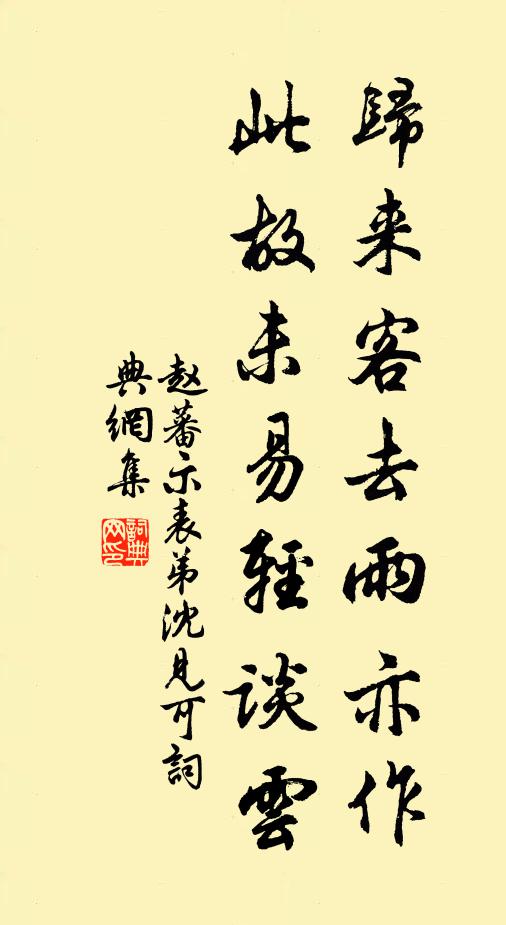 歸来客去雨亦作
此故未易輕談雲
赵蕃示表弟沈見可詞
典網集
詞典
网印